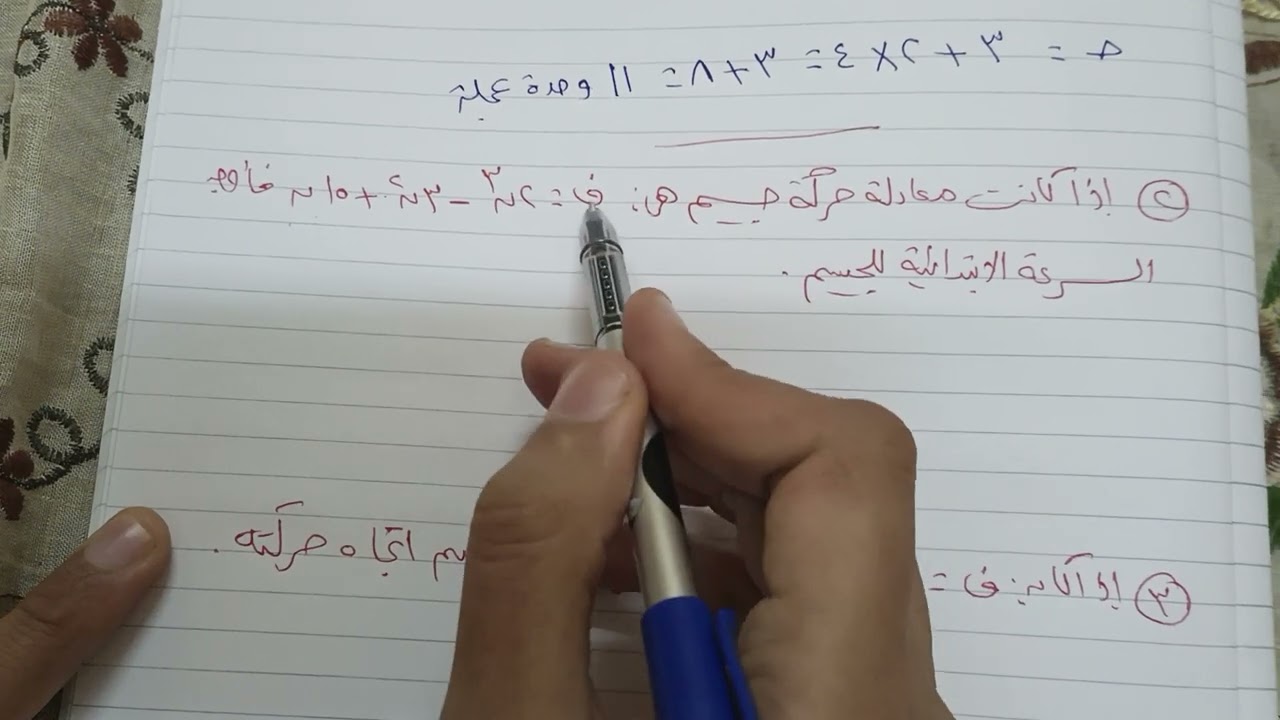 ج = ٣ + ٢ × ٤ = ٣ + ٨ = ١١ وحدة
٢ إذا كانت معادلة حركة جسم هي: ف = ٢ن٣ - ٣ن٢ + ١٥ن
السرعة الابتدائية للجسم.
٣ إذا كان ف = اتجاه حركته.